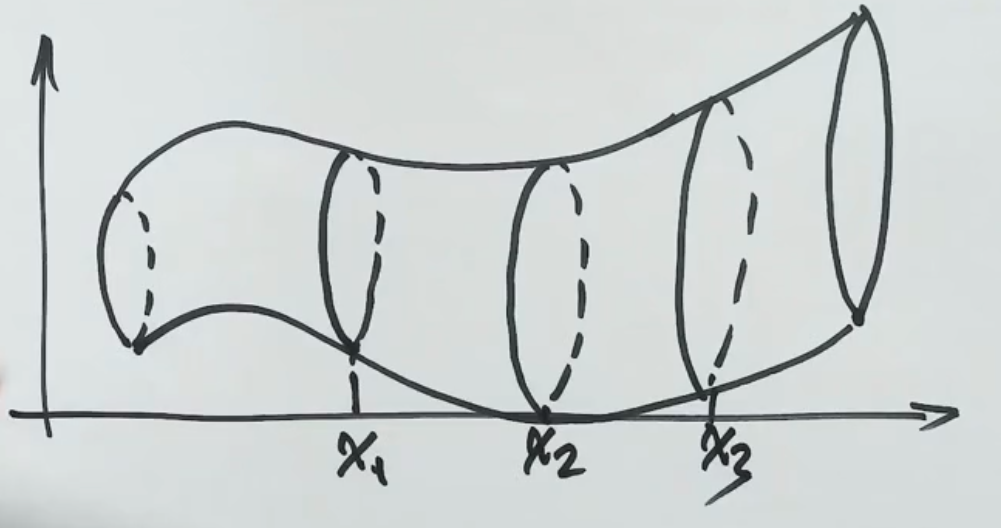 x₁ x₂ x₃